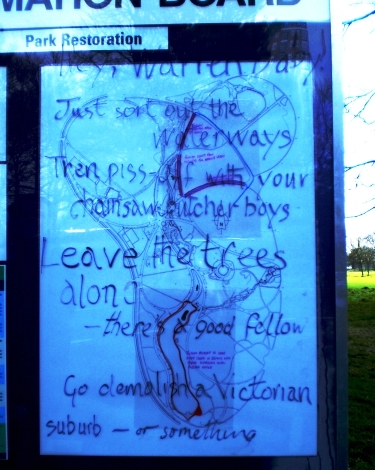 MATION BOARD
Park Restoration
Yes, Warren Baby!
Just sort out the
waterways
Then piss-off with your
chainsaw butcher boys
Leave the trees
alone
- there's a good fellow
Go demolish a Victorian
suburb - or something